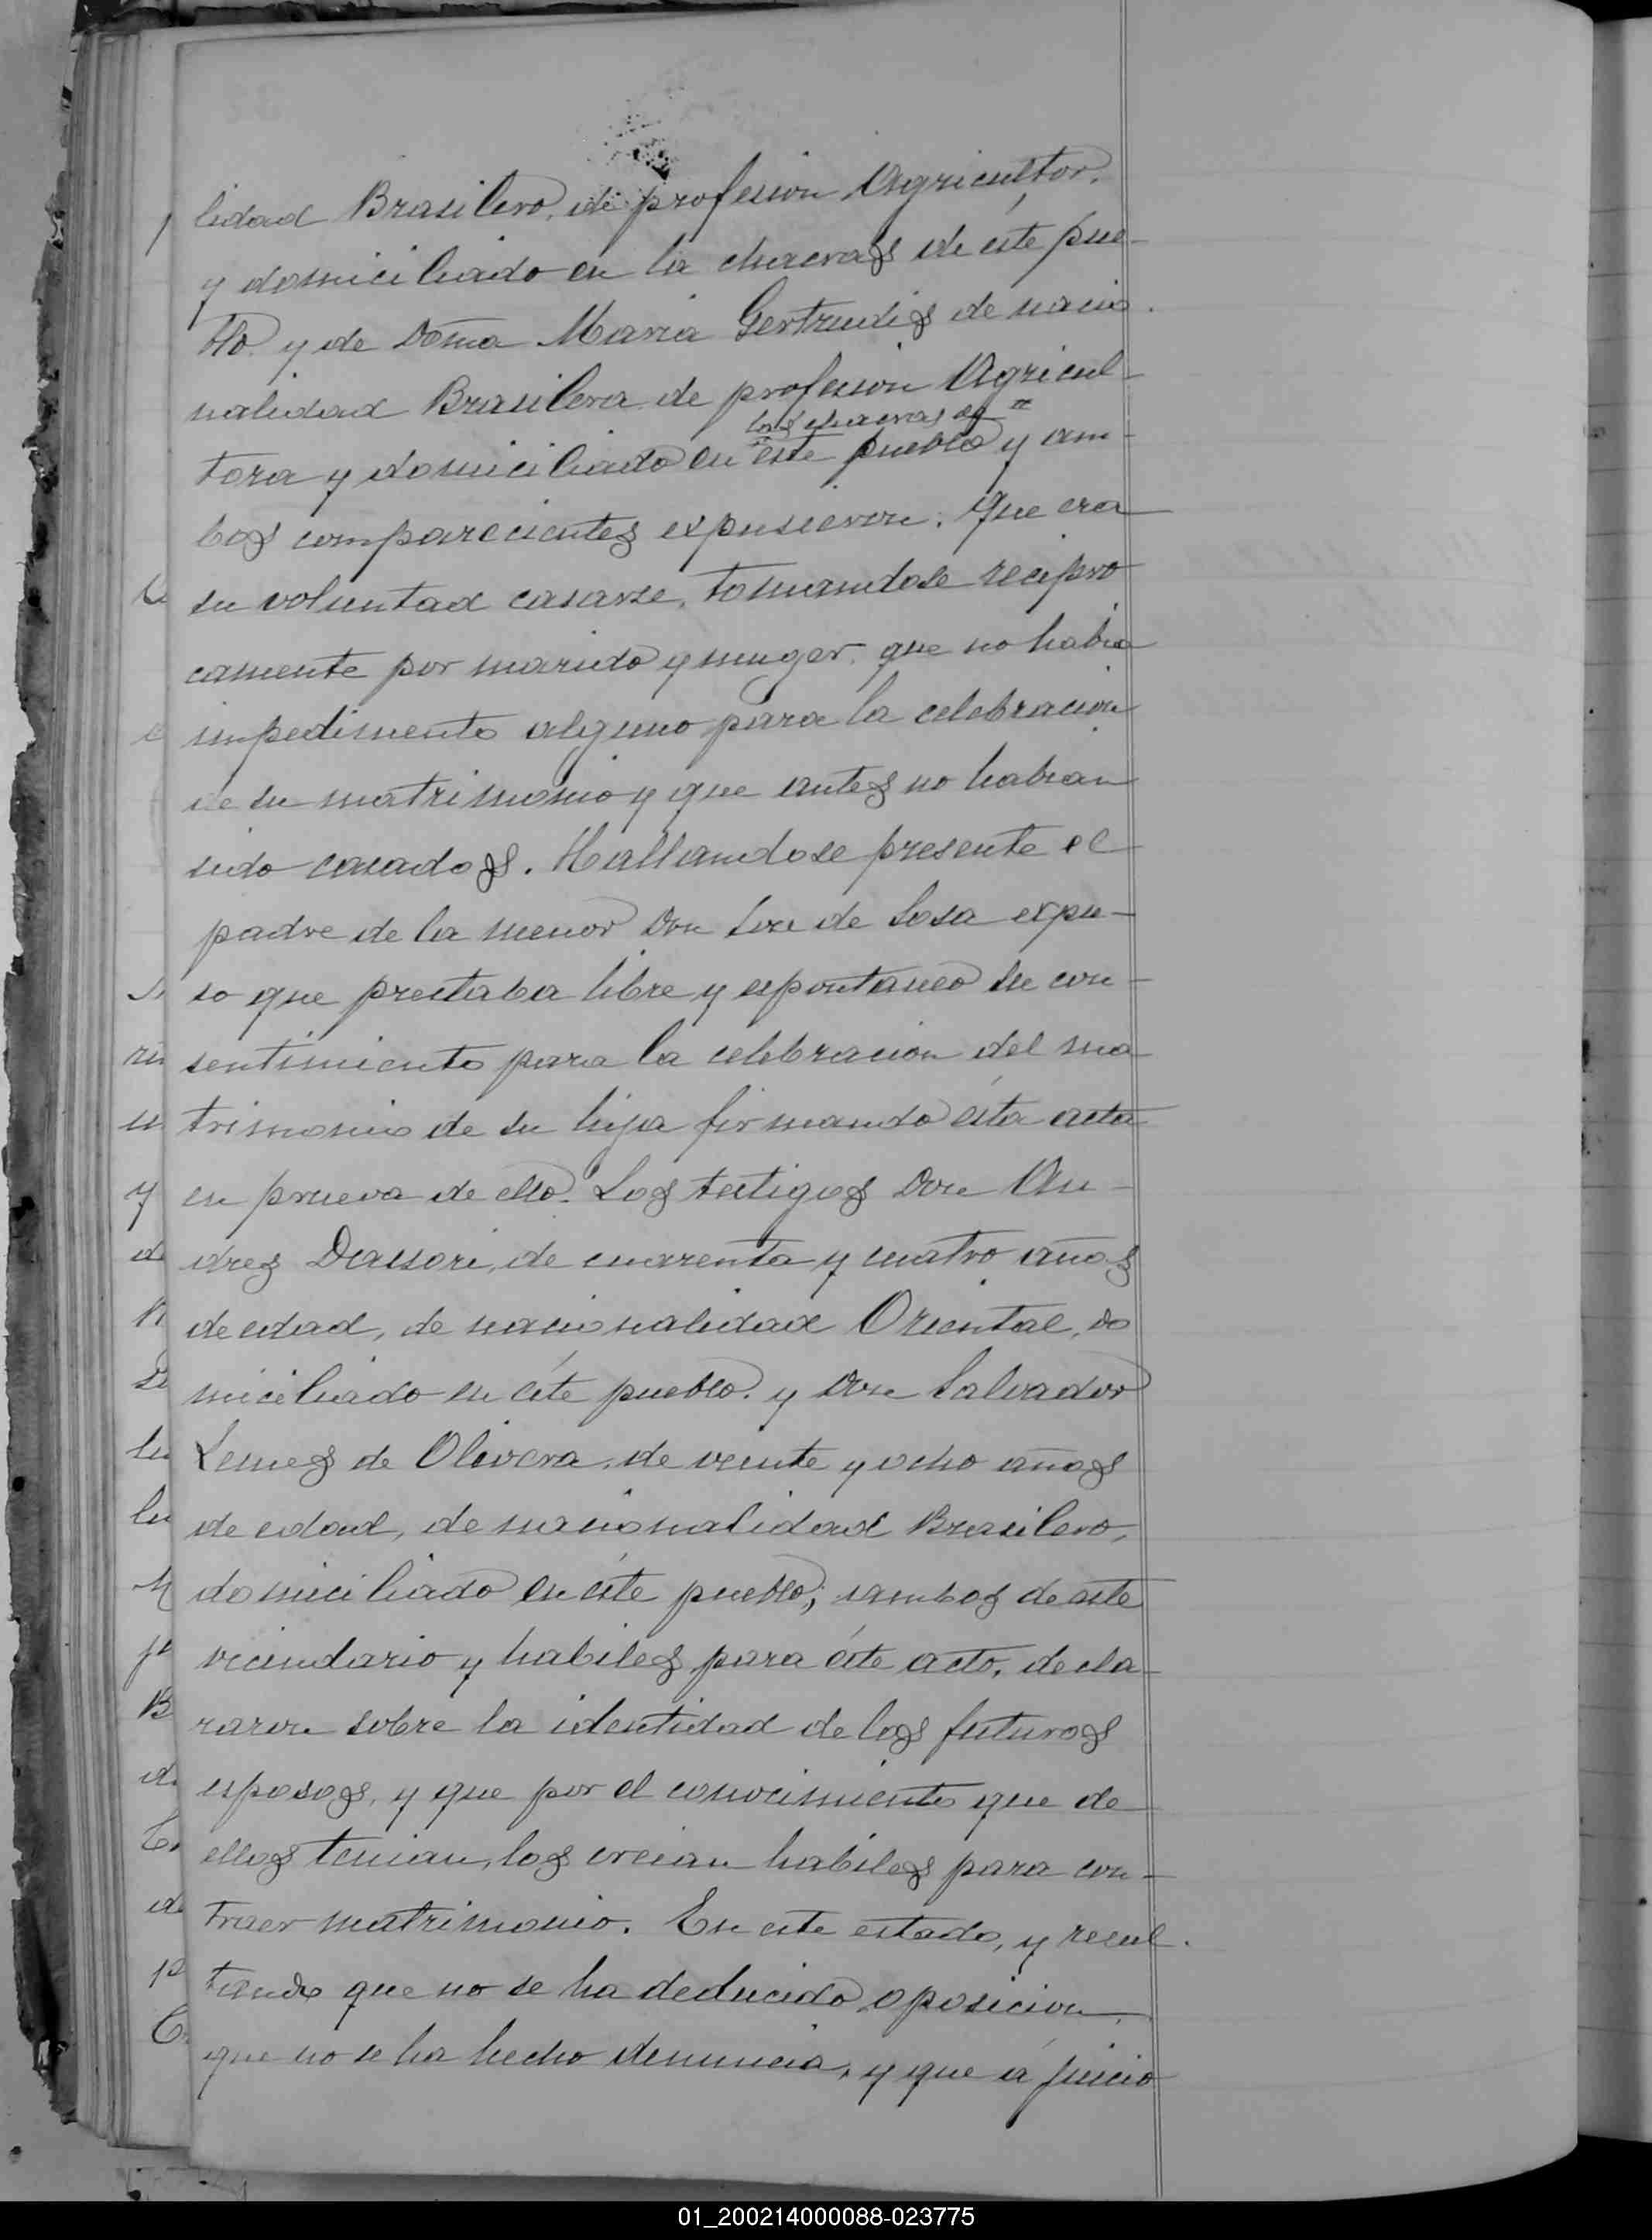 lidad Brasilero, de profesion Agricultor,
y domiciliado en la chacras de éste pue-
blo. y de Doña Maria Gertrudis de nacio-
nalidad Brasilera de profesion Agricul-
las chacras de
tora y domiciliado en este pueblo y am-
bos comparecientes expusieron: que era
su voluntad casarse, tomandose recipro
camente por marido y muger, que no habia
impedimento alguno para la celebracion
de su matrimonio y que antes no habian
sido casados. Hallandose presente el
padre de la menor Don de Sosa expu-
so que prestaba libre y espontaneo su con-
sentimiento para la celebracion del ma
trimonio de su hija firmando ésta acta
en prueva de ello. Los testigos Don An-
dres de cuarenta y cuatro años
de edad, de nacionalidad Oriental, do
miciliado en éste pueblo. y Don Salvador
Lemes de Olivera, de veinte y ocho años
de edad, de nacionalidad Brasilero,
domiciliado en éste pueblo; ambos de este
vecindario y habiles para éste acto, decla-
raron sobre la identidad de los futuros
esposos, y que por el conocimiento que de
ellos tenian, los creian habiles para con-
traer matrimonio. En este estado, y resul-
tando que no se ha deducido oposicion,
que no se ha hecho denuncia, y que á juicio
01_200214000088-023775